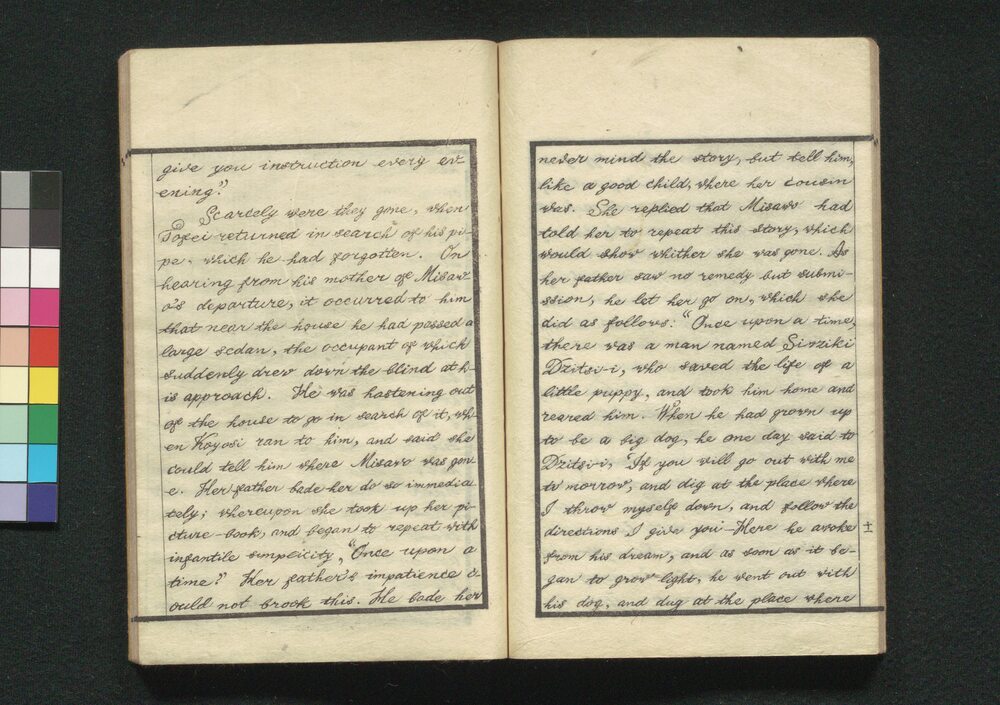 give you instruction every ev-
ening?"
Scarcely were they gone, when
Tofei returned in search of his pi-
pe, which he had forgotten. On
hearing from his mother of Misaw-
o's departure, it occurred to him
that near the house he had passed a
large sedan, the occupant of which
suddenly drew down the blind at h-
is approach. He was hastening out
of the house to go in search of it, wh-
en Koyosi ran to him, and said she
could tell him where Misawo was gon-
e. Her father bade her do so immedia-
tely; whereupon she took up her pi-
cture-book, and began to repeat with
infantile simplicity, "Once upon a
time?" Her father's impatience c-
ould not brook this. He bade her
never mind the story, but tell him,
like a good child, where her cousin
was. She replied that Misawo had
told her to repeat this story, which
would show whither she was gone. As
her father saw no remedy but submi-
ssion, he let her go on, which she
did as follows: "Once upon a time,
there was a man named Sirziki
Dzitsi-i, who saved the life of a
little puppy, and took him home and
reared him. When he had grown up
to be a big dog, he one day said to
Dzitsi-i, "If you will go out with me
to morrow, and dig at the place where
I throw myself down, and follow the
directions I give you—Here he awoke
from his dream, and as soon as it be-
gan to grow light, he went out with
his dog, and dug at the place where
十一